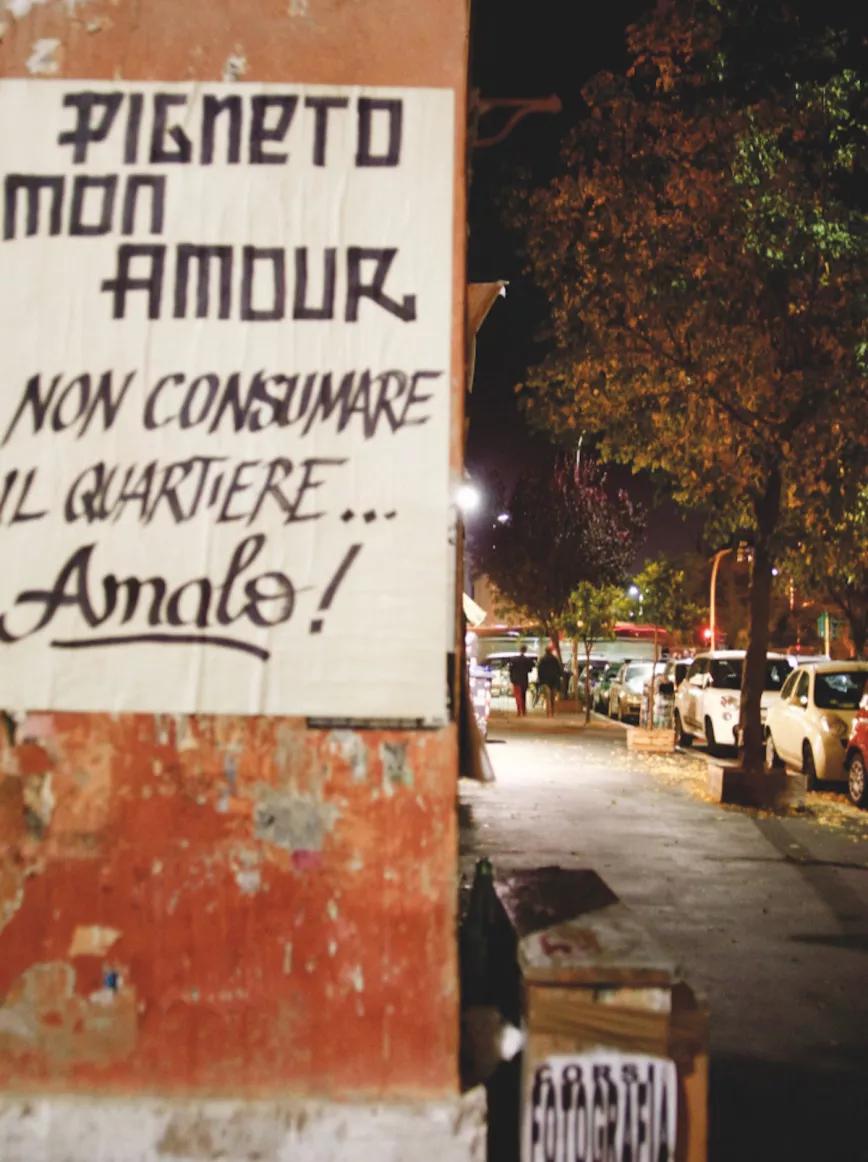 PIGNETO
MON
AMOUR
NON CONSUMARE
IL QUARTIERE...
Amalo!
CORSI
FOTOGRAFIA